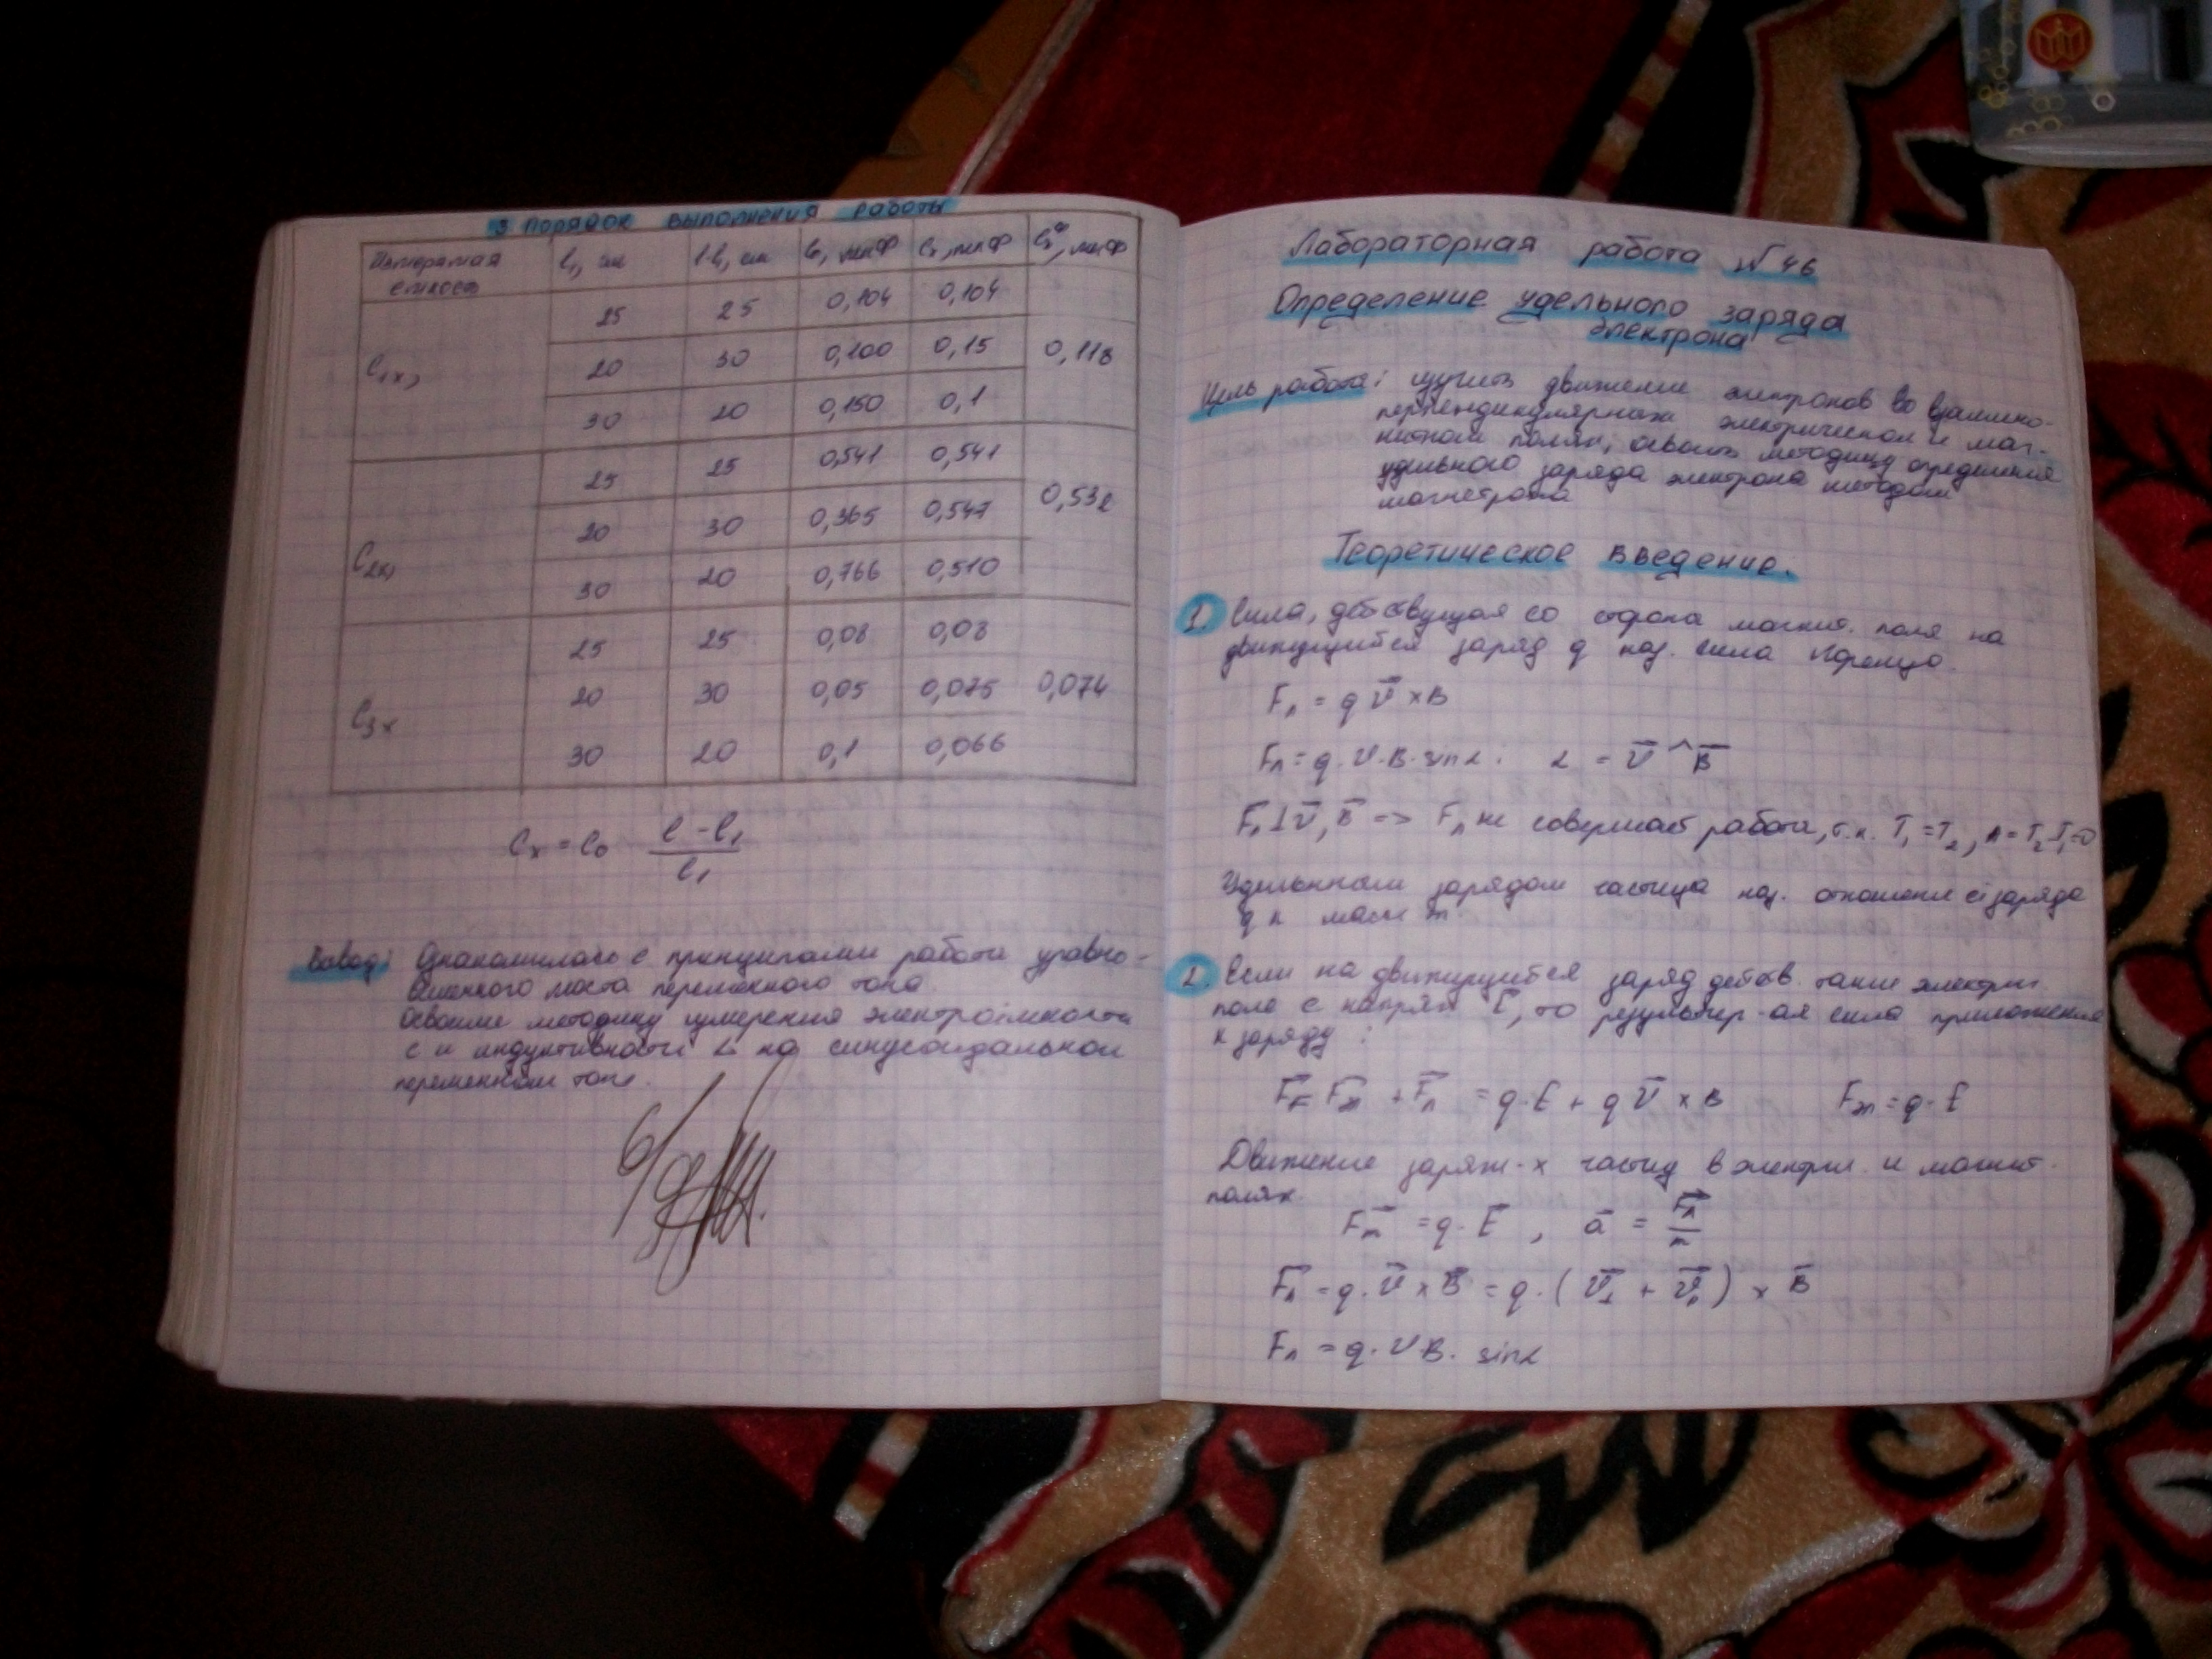 3 Порядок выполнения работы
Измеряемая емкость | l₁, см | l-l₁, см | C₀, мкФ | Cₓ, мкФ | Cₓ^ср, мкФ
C₁ₓ, | 25 | 25 | 0,104 | 0,104 | 0,118
20 | 30 | 0,100 | 0,15
30 | 20 | 0,150 | 0,1
C₂ₓ, | 25 | 25 | 0,541 | 0,541 | 0,532
20 | 30 | 0,365 | 0,547
30 | 20 | 0,766 | 0,510
C₃ₓ | 25 | 25 | 0,08 | 0,08 | 0,074
20 | 30 | 0,05 | 0,075
30 | 20 | 0,1 | 0,066
Cₓ = C₀ (l - l₁)/l₁
Вывод: Ознакомилась с принципами работы уравно-
вешенного моста переменного тока.
Освоила методику измерения электроёмкости
C и индуктивности L на синусоидальном
переменном токе.
Лабораторная работа №46
Определение удельного заряда
электрона
Цель работы: изучить движение электронов во взаимно-
перпендикулярных электрическом и маг-
нитном полях, освоить методику определения
удельного заряда электрона методом
магнетрона
Теоретическое введение.
1. Сила, действующая со стороны магнит. поля на
движущийся заряд q наз. сила Лоренца.
Fл = q v⃗ × B
Fл = q·v·B·sinα; α = v⃗ ^ B⃗
F⃗л ⊥ v⃗, B⃗ => Fл не совершает работы, т.к. T₁ = T₂, A = T₂-T₁=0
Удельным зарядом частицы наз. отношение её заряда
q к массе m
2. Если на движущийся заряд действ. также электрич.
поле с напряж E⃗, то результир-ая сила приложенная
к заряду :
F⃗ = F⃗эл + F⃗л = q·E + q v⃗ × B Fэл = q·E
Движение заряж-х частиц в электрич. и магнит.
полях.
F⃗эл = q·E⃗, a⃗ = F⃗л/m
F⃗л = q·v⃗ × B⃗ = q·(v⃗⊥ + v⃗ₗₗ) × B⃗
Fл = q·v·B·sinα